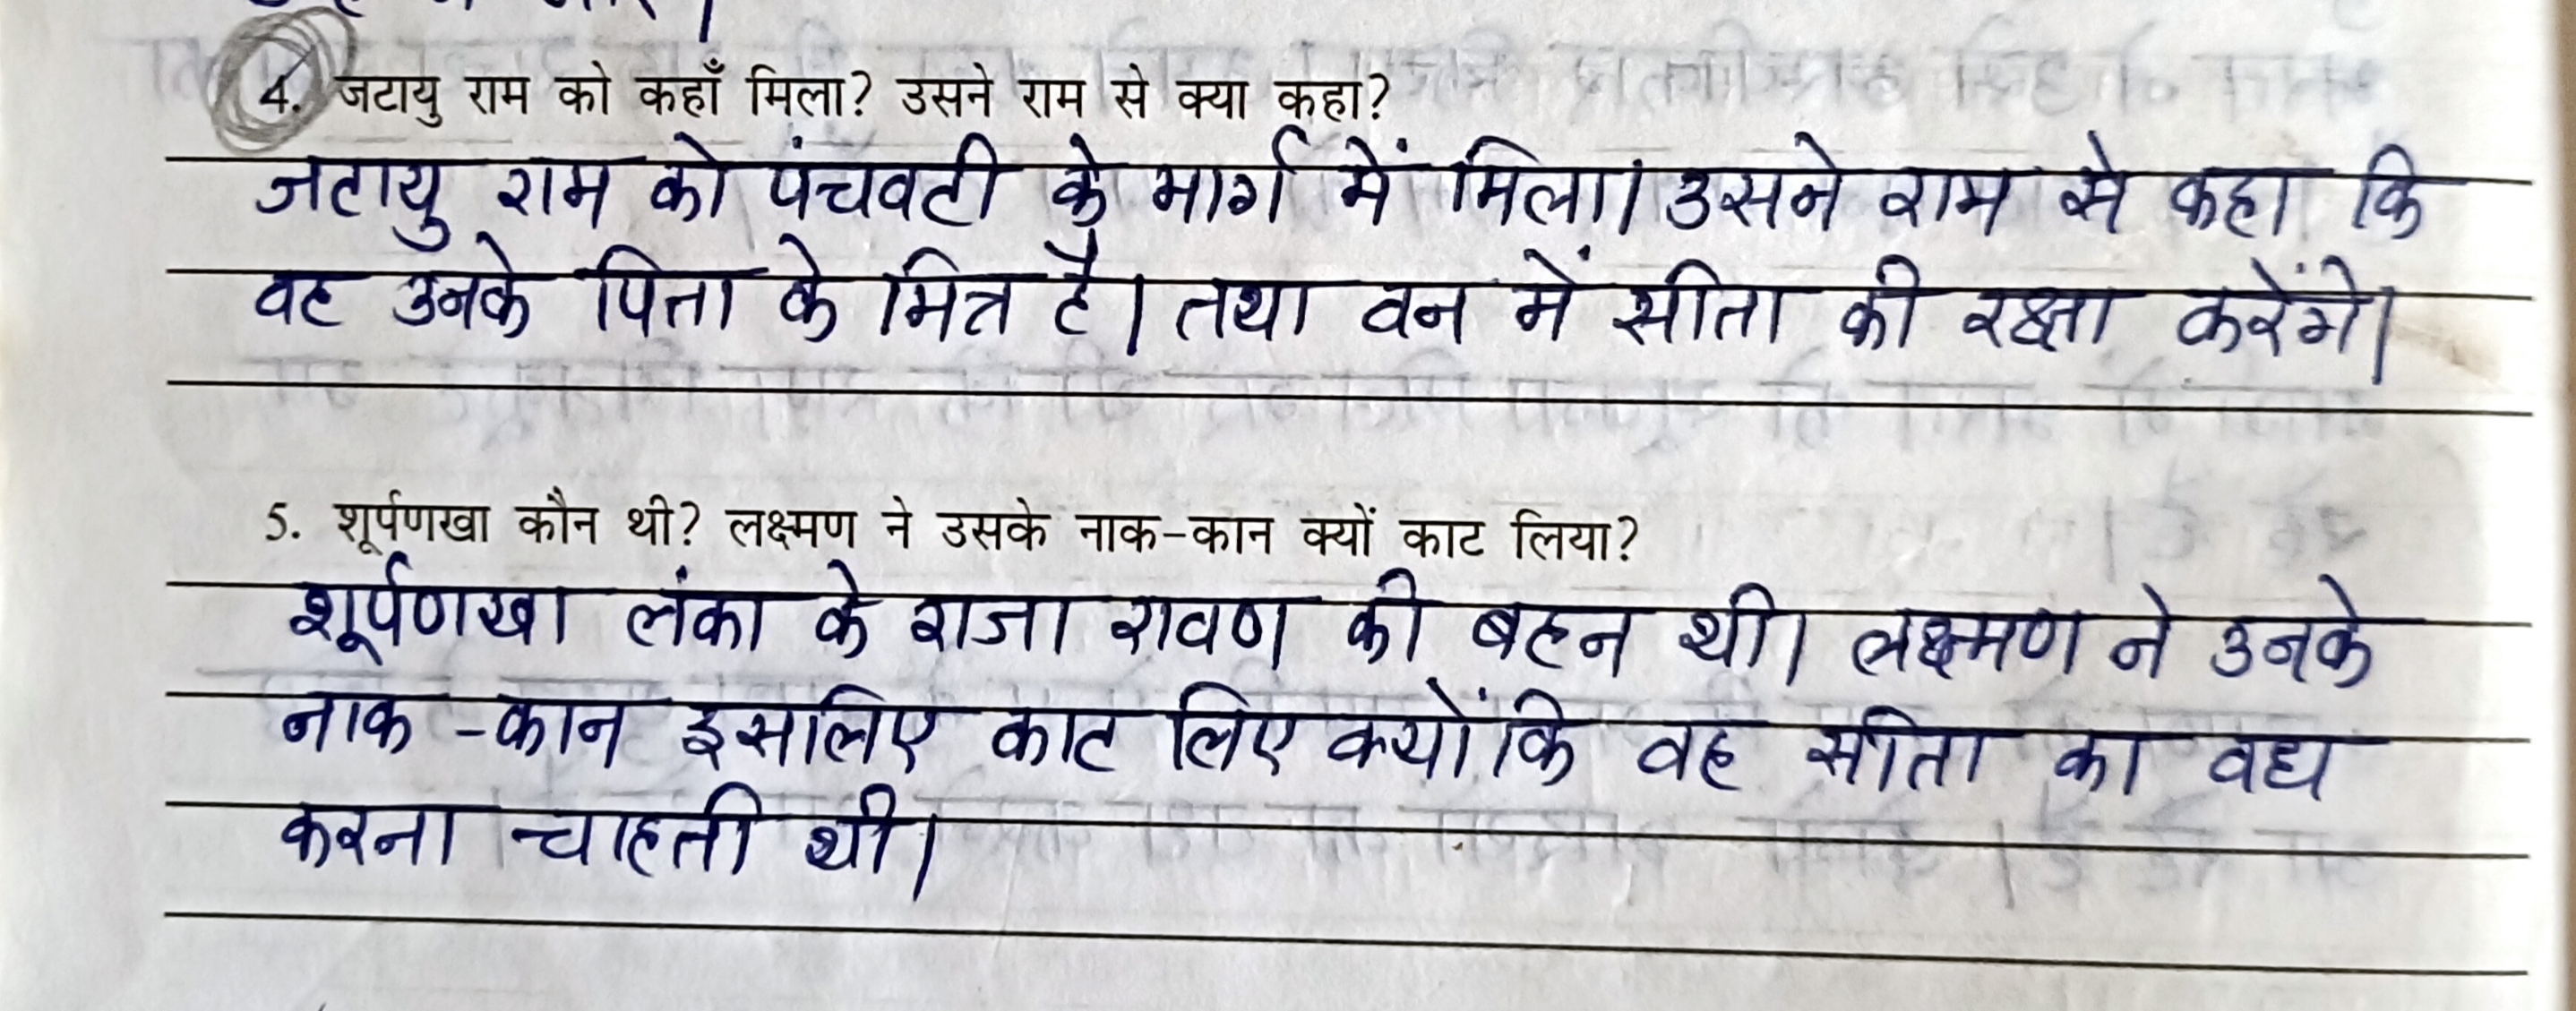 4. जटायु राम को कहाँ मिला? उसने राम से क्या कहा?
जटायु राम को पंचवटी के मार्ग में मिला। उसने राम से कहा कि
वह उनके पिता के मित्र है। तथा वन में सीता की रक्षा करेंगे।
5. शूर्पणखा कौन थी? लक्ष्मण ने उसके नाक-कान क्यों काट लिया?
शूर्पणखा लंका के राजा रावण की बहन थी। लक्ष्मण ने उनके
नाक-कान इसलिए काट लिए क्योंकि वह सीता का वध
करना चाहती थी।